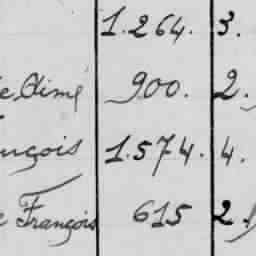 1.264. 3.
e Aimé 900. 2.
nçois 1.574. 4.
e François 615 2.